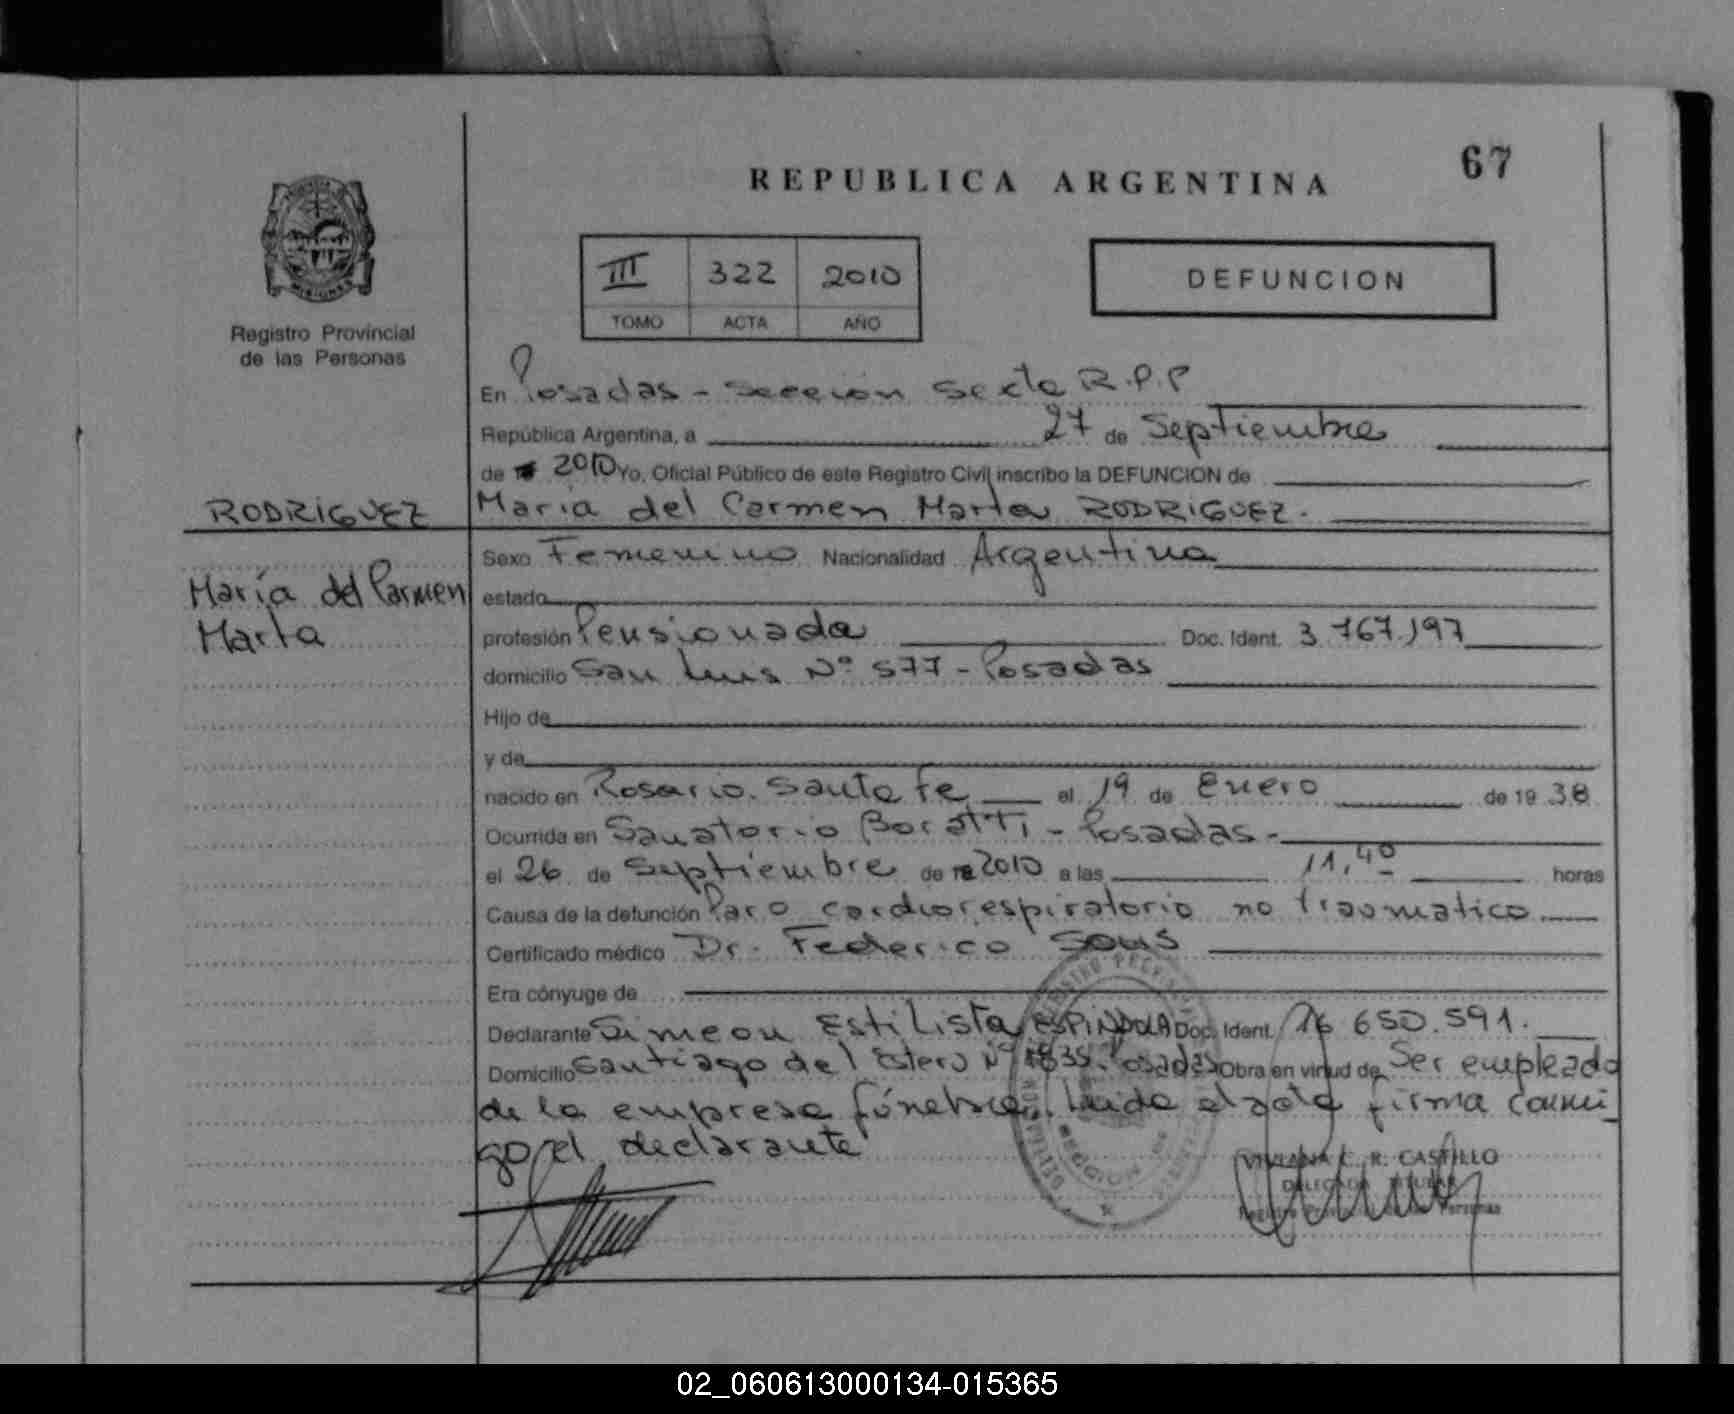 67
REPUBLICA ARGENTINA
III 322 2010
TOMO ACTA AÑO
DEFUNCION
MISIONES
Registro Provincial
de las Personas
En Posadas - Sección Sexta R.P.P
República Argentina, a 27 de Septiembre
de 2010 Yo, Oficial Público de este Registro Civil inscribo la DEFUNCION de
RODRIGUEZ
María del Carmen Marta RODRIGUEZ.
María del Carmen
Marta
Sexo Femenino Nacionalidad Argentina
estado
profesión Pensionada Doc. Ident. 3.767.197
domicilio San Luis Nº 577 - Posadas
Hijo de
y de
nacido en Rosario. Santa Fe el 19 de Enero de 19 38
Ocurrida en Sanatorio Boratti - Posadas -
el 26 de Septiembre de 2010 a las 11,40 horas
Causa de la defunción Paro cardiorespiratorio no traumatico
Certificado médico Dr. Federico
Era cónyuge de
Declarante Simeon Estilista ESPINDOLA Doc. Ident. 16 650.591.
Domicilio Santiago del Estero Nº 1835. Posadas Obra en virtud de Ser empleado
de la empresa fúnebre. Leida el acta firma conmi
go el declarante
VIVIANA C. R. CASTILLO
DELEGADA TITULAR
Registro Provincial de las Personas
02_060613000134-015365